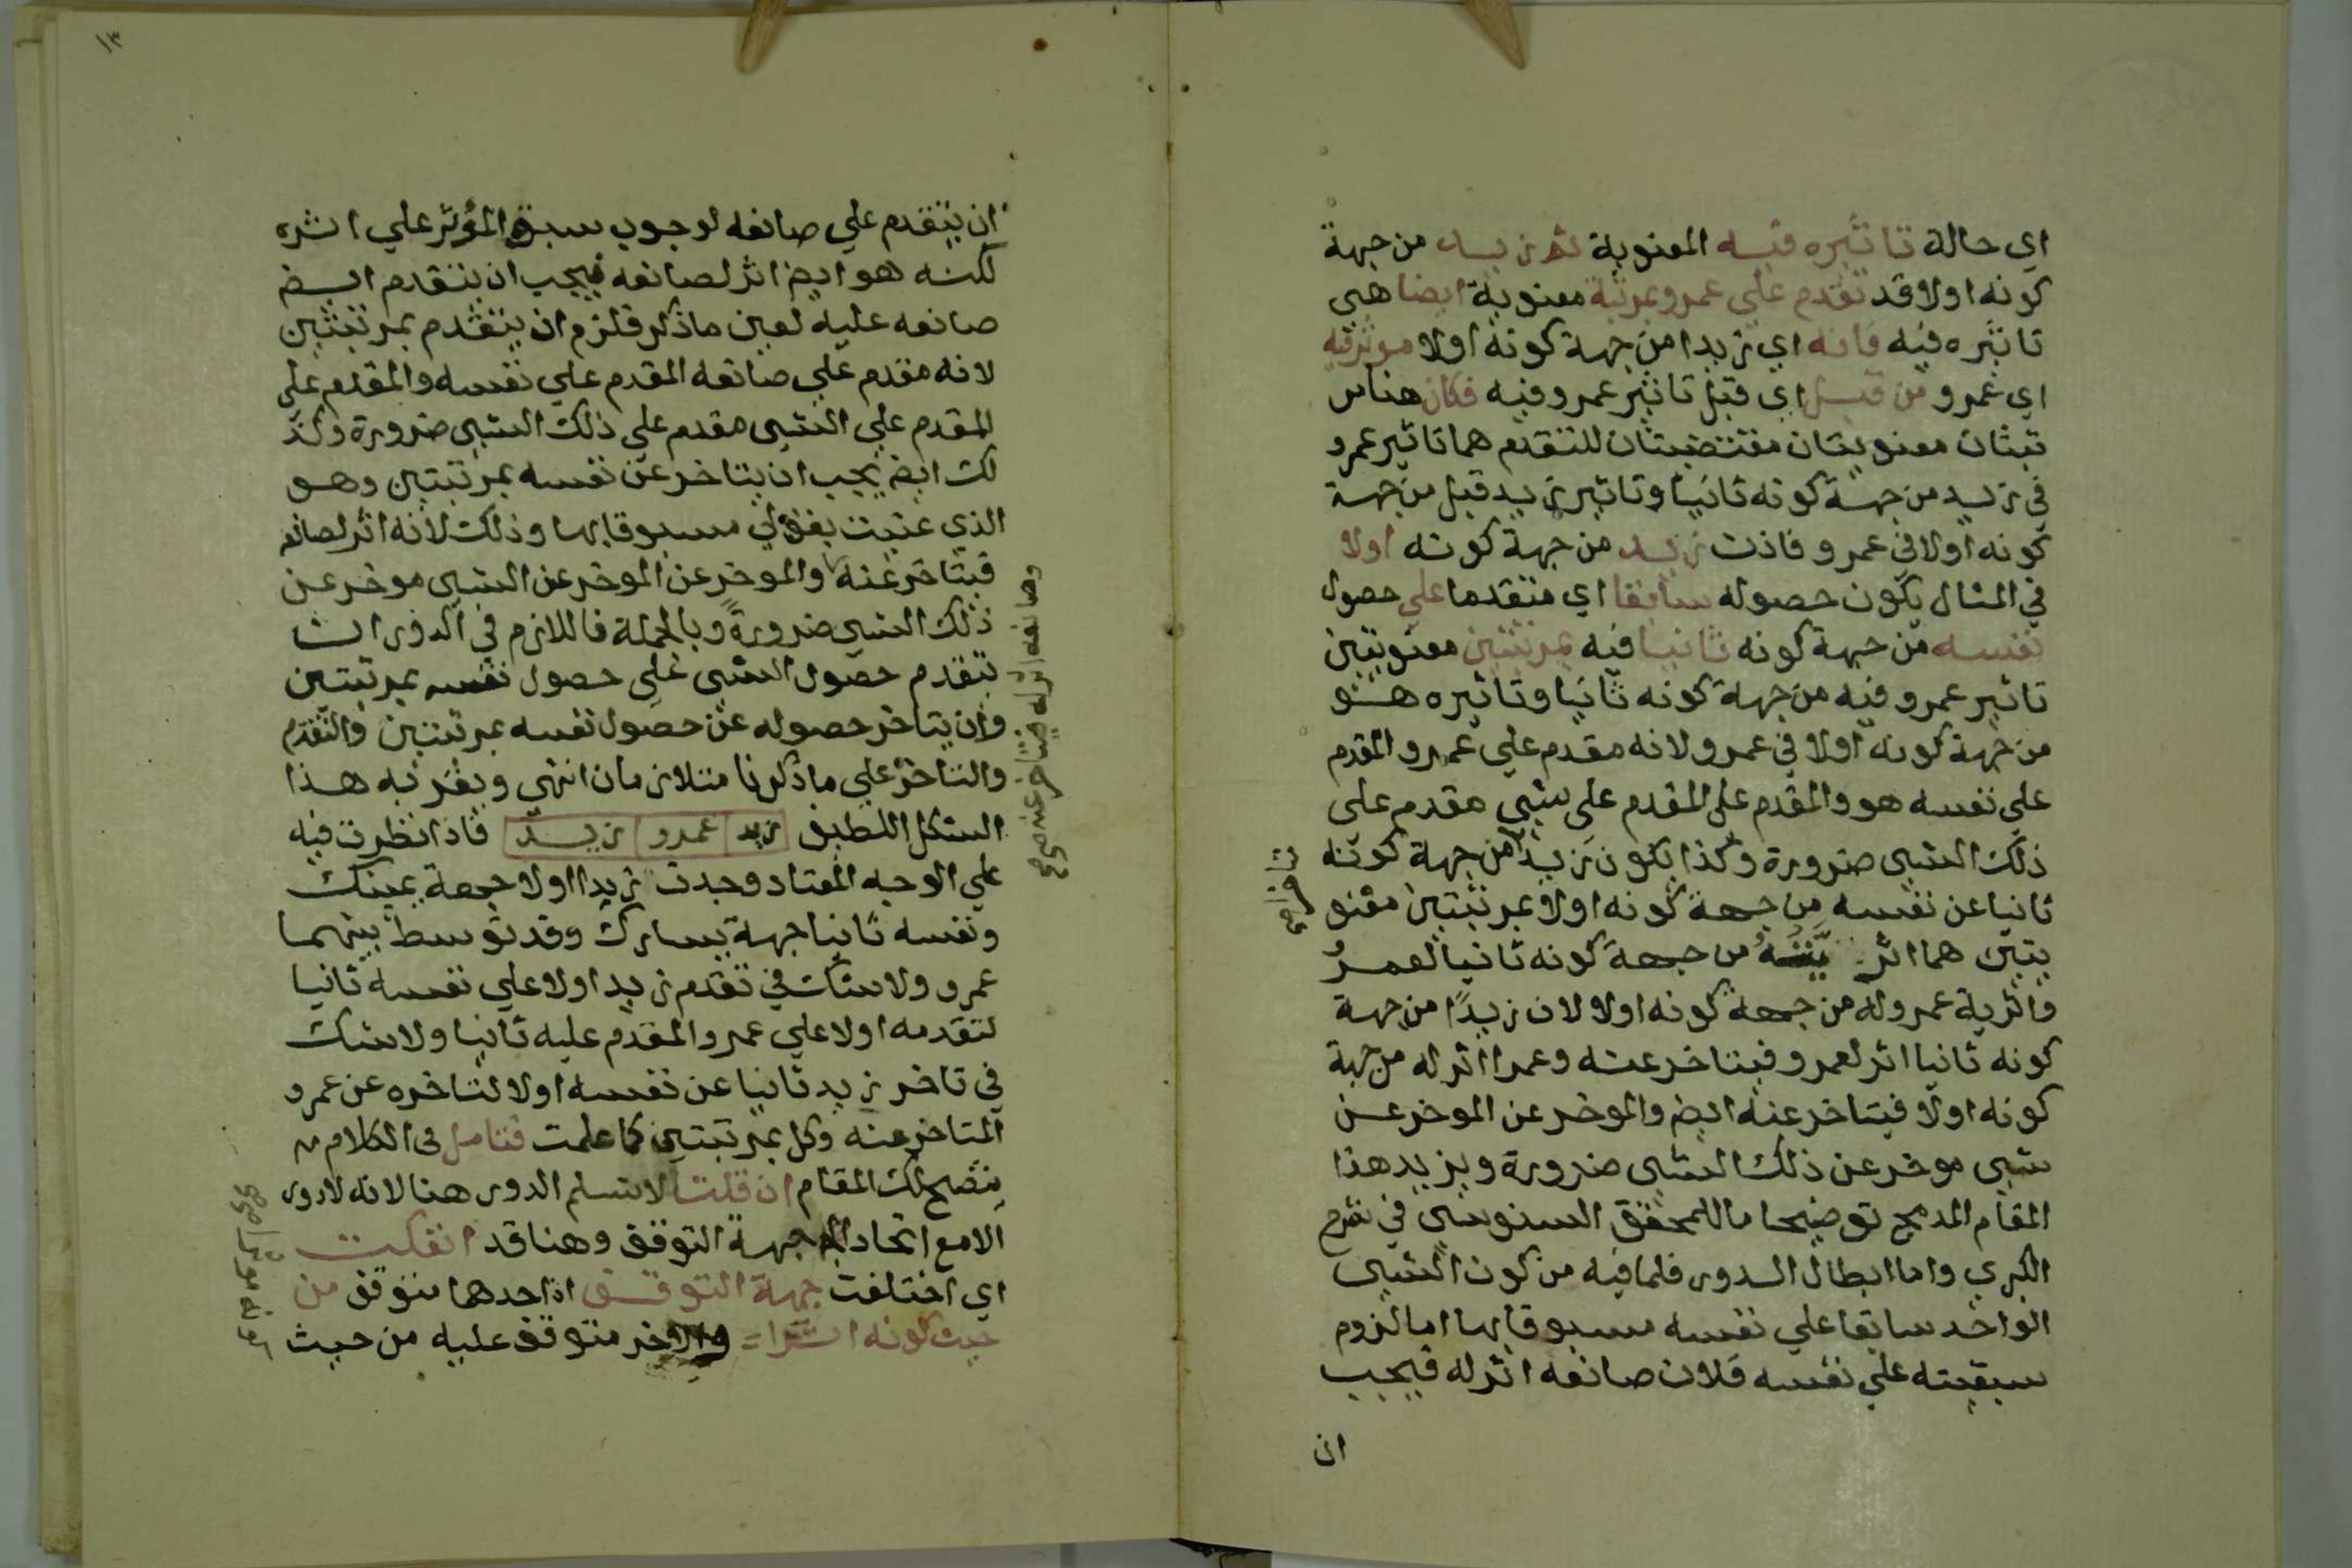 اي حالة تاثيره فيه المعنوية ثم زيد من جهة
كونه اولا قد تقدم علي عمرو بمرتبة معنوية ايضا هي
تاثيره فيه فانه اي زيدا من جهة كونه اولا موثر فيه
اي عمرو من قبل اي قبل تاثير عمرو فيه فكان هناس
تبتان معنويتان مقتضيتان للتقدم هما تاثير عمرو
في زيد من جهة كونه ثانيا وتاثير زيد قبل من جهة
كونه اولا في عمرو فاذت زيد من جهة كونه اولا
في المثال يكون حصوله سابقا اي متقدما علي حصول
نفسه من جهة كونه ثانيا فيه بمرتبتين معنويتين
تاثير عمرو فيه من جهة كونه ثانيا وتاثيره هو
من جهة كونه اولا في عمرو لانه مقدم علي عمرو المقدم
علي نفسه هو والمقدم على المقدم على شي مقدم على
ذلك الشي ضرورة وكذا يكون زيد من جهة كونه
تاخرا صح
ثانيا عن نفسه من جهة كونه اولا بمرتبتين معنو
يتين هما اثر من جهة كونه ثانيا لعمرو
واثرية عمرو له من جهة كونه اولا لان زيدا من جهة
كونه ثانيا اثر لعمرو فيتاخر عنه وعمرا اثر له من جهة
كونه اولا فيتاخر عنه ايض والموخر عن الموخر عن
شي موخر عن ذلك الشي ضرورة ويزيد هذا
المقام المدمج توضيحا ما للمحقق السنوسي في شرح
الكبري واما ابطال الدور فلما فيه من كون الشي
الواحد سابقا علي نفسه مسبوقا بها اما لزوم
سبقيته علي نفسه فلان صانعه اثر له فيجب
ان
١٣
ان يتقدم علي صانعه لوجوب سبق المؤثر علي اثره
لكنه هو ايض اثر لصانعه فيجب ان يتقدم ايض
صانعه عليه لعين ما ذكر فلزم ان يتقدم بمرتبتين
لانه مقدم علي صانعه المقدم علي نفسه والمقدم على
المقدم علي الشي مقدم علي ذلك الشي ضرورة وكذ
لك ايض يجب ان يتاخر عن نفسه بمرتبتين وهو
الذي عنيت بقولي مسبوقا بها وذلك لانه اثر لصانعه
فيتاخر عنه والموخر عن الموخر عن الشي موخر عن
وصانعه اثر له فيتاخر عنه صح
ذلك الشي ضرورة وبالجملة فاللازم في الدور ان
يتقدم حصول الشي على حصول نفسه بمرتبتين
وان يتاخر حصوله عن حصول نفسه بمرتبتين والتقدم
والتاخر علي ما ذكرنا متلازمان انتهي ويقربه هذا
الشكل اللطيف زيد عمرو زيد فاذا نظرت فيه
علي الوجه المعتاد وجدت زيدا اولا جهة يمينك
ونفسه ثانيا جهة يسارك وقد توسط بينهما
عمرو ولا شك في تقدم زيد اولا علي نفسه ثانيا
لتقدمه اولا علي عمرو المقدم عليه ثانيا ولا شك
في تاخر زيد ثانيا عن نفسه اولا لتاخره عن عمرو
المتاخر عنه وكل بمرتبتين كما علمت فتامل في الكلام
يتضح لك المقام ان قلت لا نسلم الدور هنا لانه لا دور
الا مع اتحاد جهة التوقف وهنا قد انفكت
اي اختلفت جهة التوقف اذ احدهما متوقف من
حيث كونه اثرا والاخر متوقف عليه من حيث
كونه موثرا صح